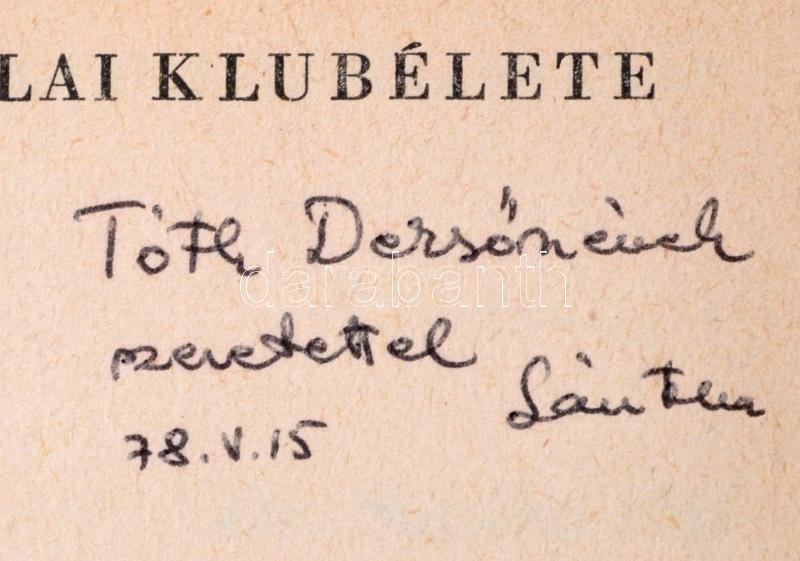 LAI KLUBÉLETE
Tóth Dezsőnének
szeretettel
Sántha
78. V. 15
darabanth